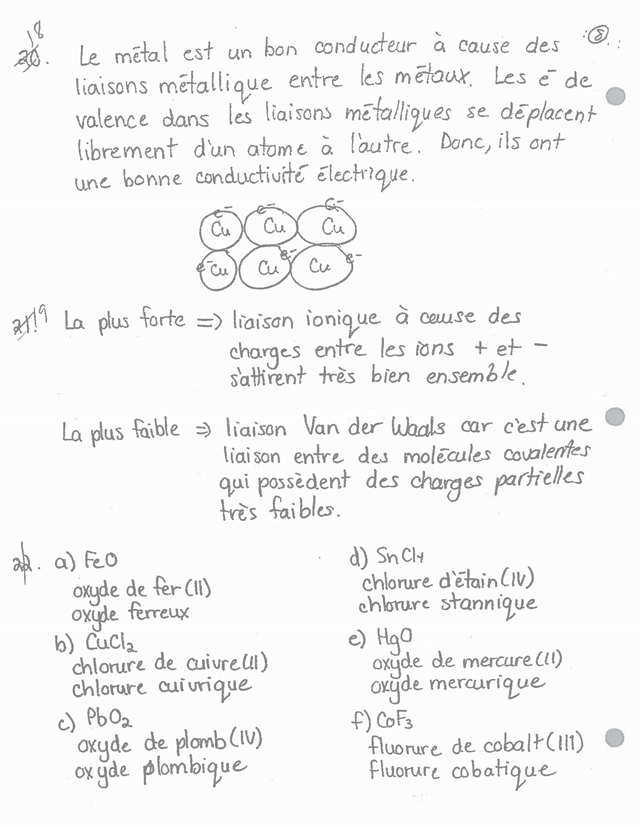 18
20. Le métal est un bon conducteur à cause des
liaisons métallique entre les métaux. Les e⁻ de
valence dans les liaisons métalliques se déplacent
librement d'un atome à l'autre. Donc, ils ont
une bonne conductivité électrique.
8
e⁻ e⁻ e⁻
Cu Cu Cu
e⁻ e⁻ e⁻
Cu Cu Cu
21. 19 La plus forte => liaison ionique à cause des
charges entre les ions + et -
s'attirent très bien ensemble.
La plus faible => liaison Van der Waals car c'est une
liaison entre des molécules covalentes
qui possèdent des charges partielles
très faibles.
22. a) FeO
oxyde de fer (II)
oxyde ferreux
b) CuCl₂
chlorure de cuivre (II)
chlorure cuivrique
c) PbO₂
oxyde de plomb (IV)
oxyde plombique
d) SnCl₄
chlorure d'étain (IV)
chlorure stannique
e) HgO
oxyde de mercure (II)
oxyde mercurique
f) CoF₃
fluorure de cobalt (III)
fluorure cobatique